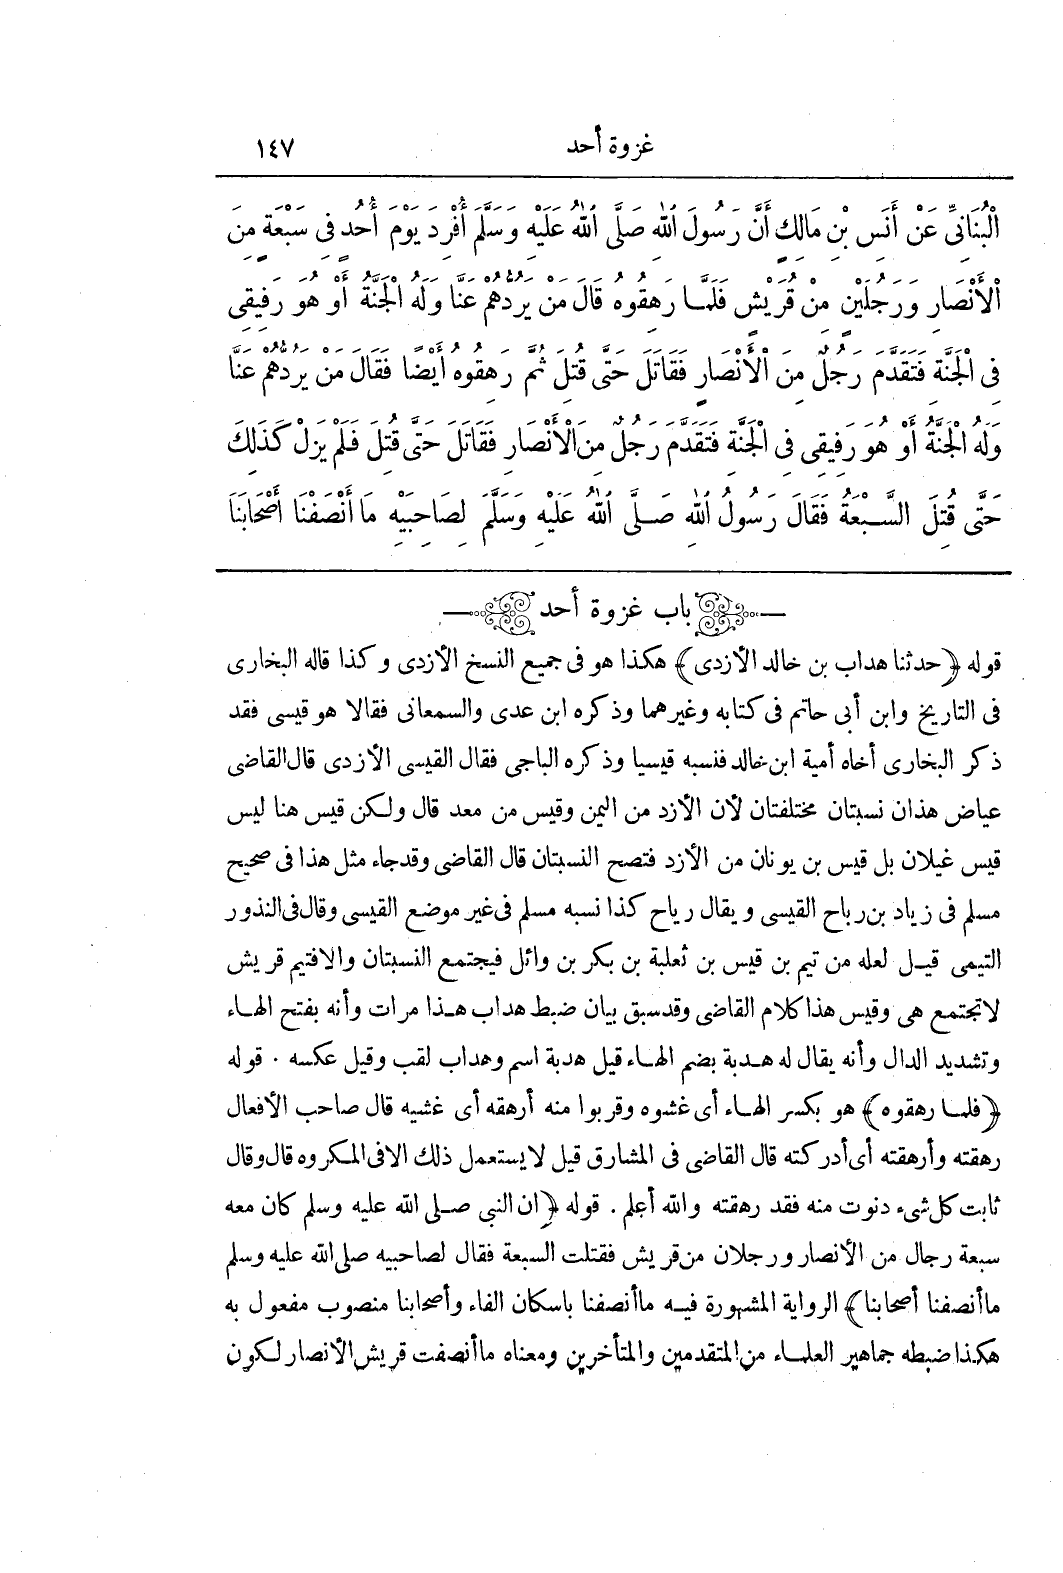 غزوة أحد ١٤٧
الْبُنَانِيِّ عَنْ أَنَسِ بْنِ مَالِكٍ أَنَّ رَسُولَ اللهِ صَلَّى اللهُ عَلَيْهِ وَسَلَّمَ أُفْرِدَ يَوْمَ أُحُدٍ فِى سَبْعَةٍ مِنَ
الْأَنْصَارِ وَرَجُلَيْنِ مِنْ قُرَيْشٍ فَلَمَّا رَهِقُوهُ قَالَ مَنْ يَرُدُّهُمْ عَنَّا وَلَهُ الْجَنَّةُ أَوْ هُوَ رَفِيقِى
فِى الْجَنَّةِ فَتَقَدَّمَ رَجُلٌ مِنَ الْأَنْصَارِ فَقَاتَلَ حَتَّى قُتِلَ ثُمَّ رَهِقُوهُ أَيْضًا فَقَالَ مَنْ يَرُدُّهُمْ عَنَّا
وَلَهُ الْجَنَّةُ أَوْ هُوَ رَفِيقِى فِى الْجَنَّةِ فَتَقَدَّمَ رَجُلٌ مِنَ الْأَنْصَارِ فَقَاتَلَ حَتَّى قُتِلَ فَلَمْ يَزَلْ كَذَلِكَ
حَتَّى قُتِلَ السَّبْعَةُ فَقَالَ رَسُولُ اللهِ صَلَّى اللهُ عَلَيْهِ وَسَلَّمَ لِصَاحِبَيْهِ مَا أَنْصَفْنَا أَصْحَابَنَا
باب غزوة أحد
قوله ﴿حدثنا هداب بن خالد الأزدى﴾ هكذا هو فى جميع النسخ الأزدى وكذا قاله البخارى
فى التاريخ وابن أبى حاتم فى كتابه وغيرهما وذكره ابن عدى والسمعانى فقالا هو قيسى فقد
ذكر البخارى أخاه أمية ابن خالد فنسبه قيسيا وذكره الباجى فقال القيسى الأزدى قال القاضى
عياض هذان نسبتان مختلفتان لأن الأزد من اليمن وقيس من معد قال ولكن قيس هنا ليس
قيس غيلان بل قيس بن يونان من الأزد فتصح النسبتان قال القاضى وقد جاء مثل هذا فى صحيح
مسلم فى زياد بن رباح القيسى ويقال رياح كذا نسبه مسلم فى غير موضع القيسى وقال فى النذور
التيمى قيل لعله من تيم بن قيس بن ثعلبة بن بكر بن وائل فيجتمع النسبتان والافتيم قريش
لاتجتمع هى وقيس هذا كلام القاضى وقد سبق بيان ضبط هداب هذا مرات وأنه بفتح الهاء
وتشديد الدال وأنه يقال له هدبة بضم الهاء قيل هدبة اسم وهداب لقب وقيل عكسه . قوله
﴿فلما رهقوه﴾ هو بكسر الهاء أى غشوه وقربوا منه أرهقه أى غشيه قال صاحب الأفعال
رهقته وأرهقته أى أدركته قال القاضى فى المشارق قيل لايستعمل ذلك الافى المكروه قال وقال
ثابت كل شىء دنوت منه فقد رهقته والله أعلم . قوله ﴿إن النبى صلى الله عليه وسلم كان معه
سبعة رجال من الأنصار ورجلان من قريش فقتلت السبعة فقال لصاحبيه صلى الله عليه وسلم
ما أنصفنا أصحابنا﴾ الرواية المشهورة فيه ما أنصفنا باسكان الفاء وأصحابنا منصوب مفعول به
هكذا ضبطه جماهير العلماء من المتقدمين والمتأخرين ومعناه ما أنصفت قريش الأنصار لكون